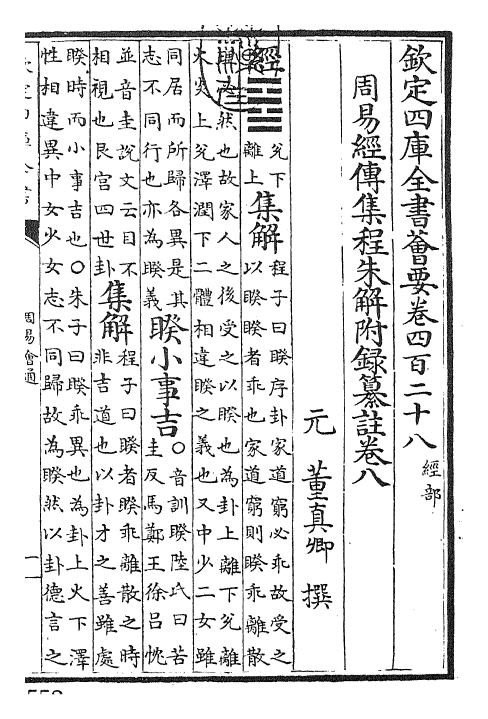 欽定四庫全書薈要卷四百二十八 經部
周易經傳集程朱解附録纂註卷八
元 董真卿 撰
經 ䷥ 兌下
離上
集解
程子曰睽序卦家道窮必乖故受之
以睽睽者乖也家道窮則睽乖離散
必然也故家人之後受之以睽也為卦上離下兌離
火炎上兌澤潤下二體相違睽之義也又中少二女雖
同居而所歸各異是其
志不同行也亦為睽義
睽小事吉
○音訓睽陸氏曰苦
圭反馬鄭王徐吕忱
並音圭説文云目不
相視也艮宫四世卦
集解
程子曰睽者睽乖離散之時
非吉道也以卦才之善雖處
睽時而小事吉也○朱子曰睽乖異也為卦上火下澤
性相違異中女少女志不同歸故為睽然以卦德言之
周易會通
一